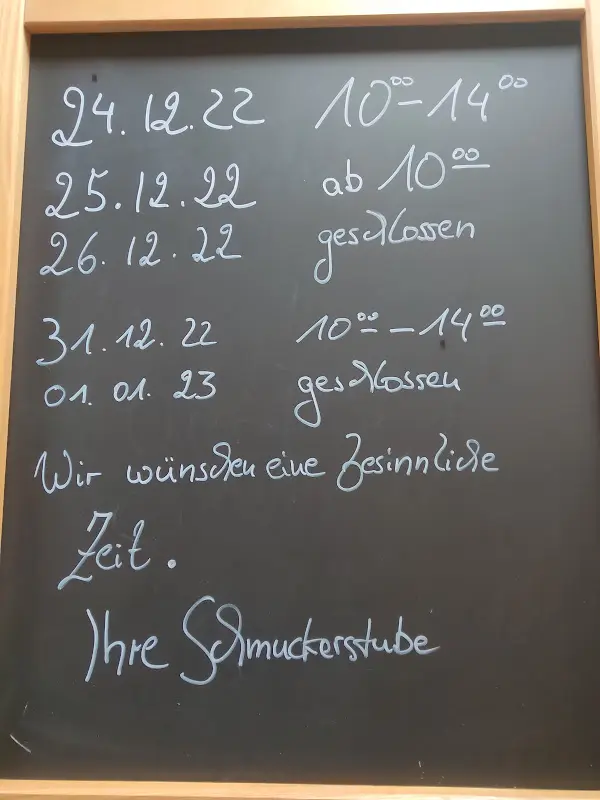 24.12.22 10⁰⁰-14⁰⁰
25.12.22 ab 10⁰⁰
26.12.22 geschlossen
31.12.22 10⁰⁰-14⁰⁰
01.01.23 geschlossen
Wir wünschen eine besinnliche
Zeit.
Ihre Schmuckerstube